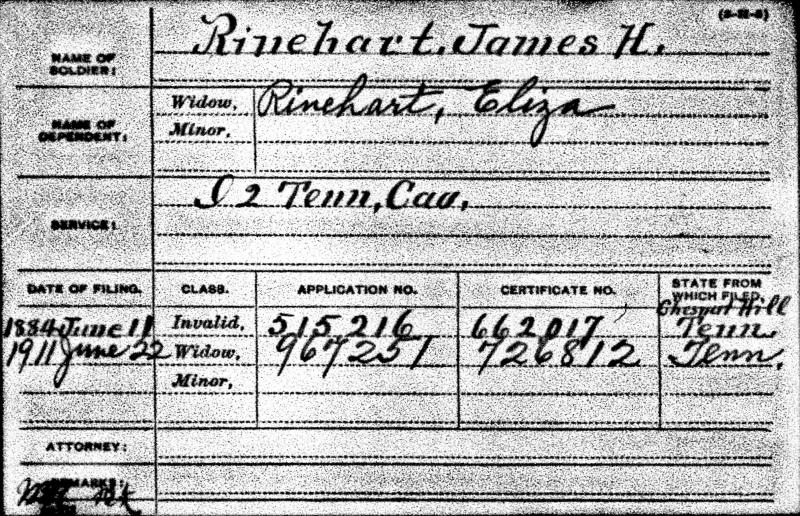 (3-111-5)
NAME OF SOLDIER: Rinehart, James H.
NAME OF DEPENDENT: Widow, Rinehart, Eliza
Minor,
SERVICE: I 2 Tenn, Cav,
DATE OF FILING. CLASS. APPLICATION NO. CERTIFICATE NO. STATE FROM WHICH FILED.
1884 June 11 Invalid, 515,216 662017 Hill Tenn,
1911 June 22 Widow, 967251 726812 Tenn,
Minor,
ATTORNEY:
REMARKS: